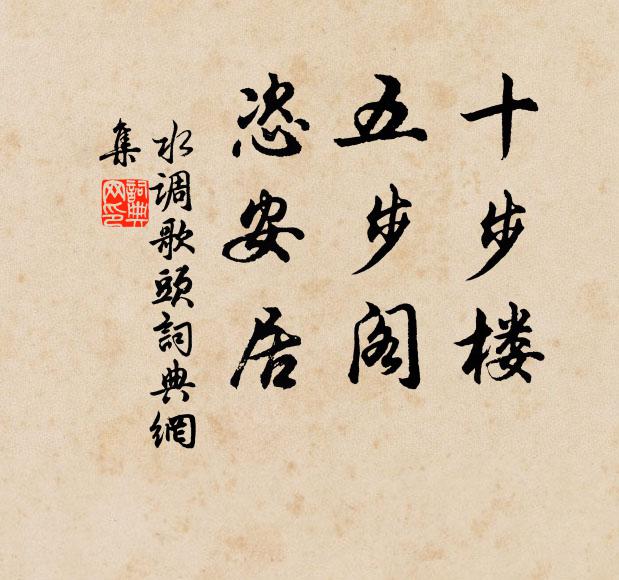 十步楼
五步阁
恣安居
水调歌頭詞典網
集
詞典
网印